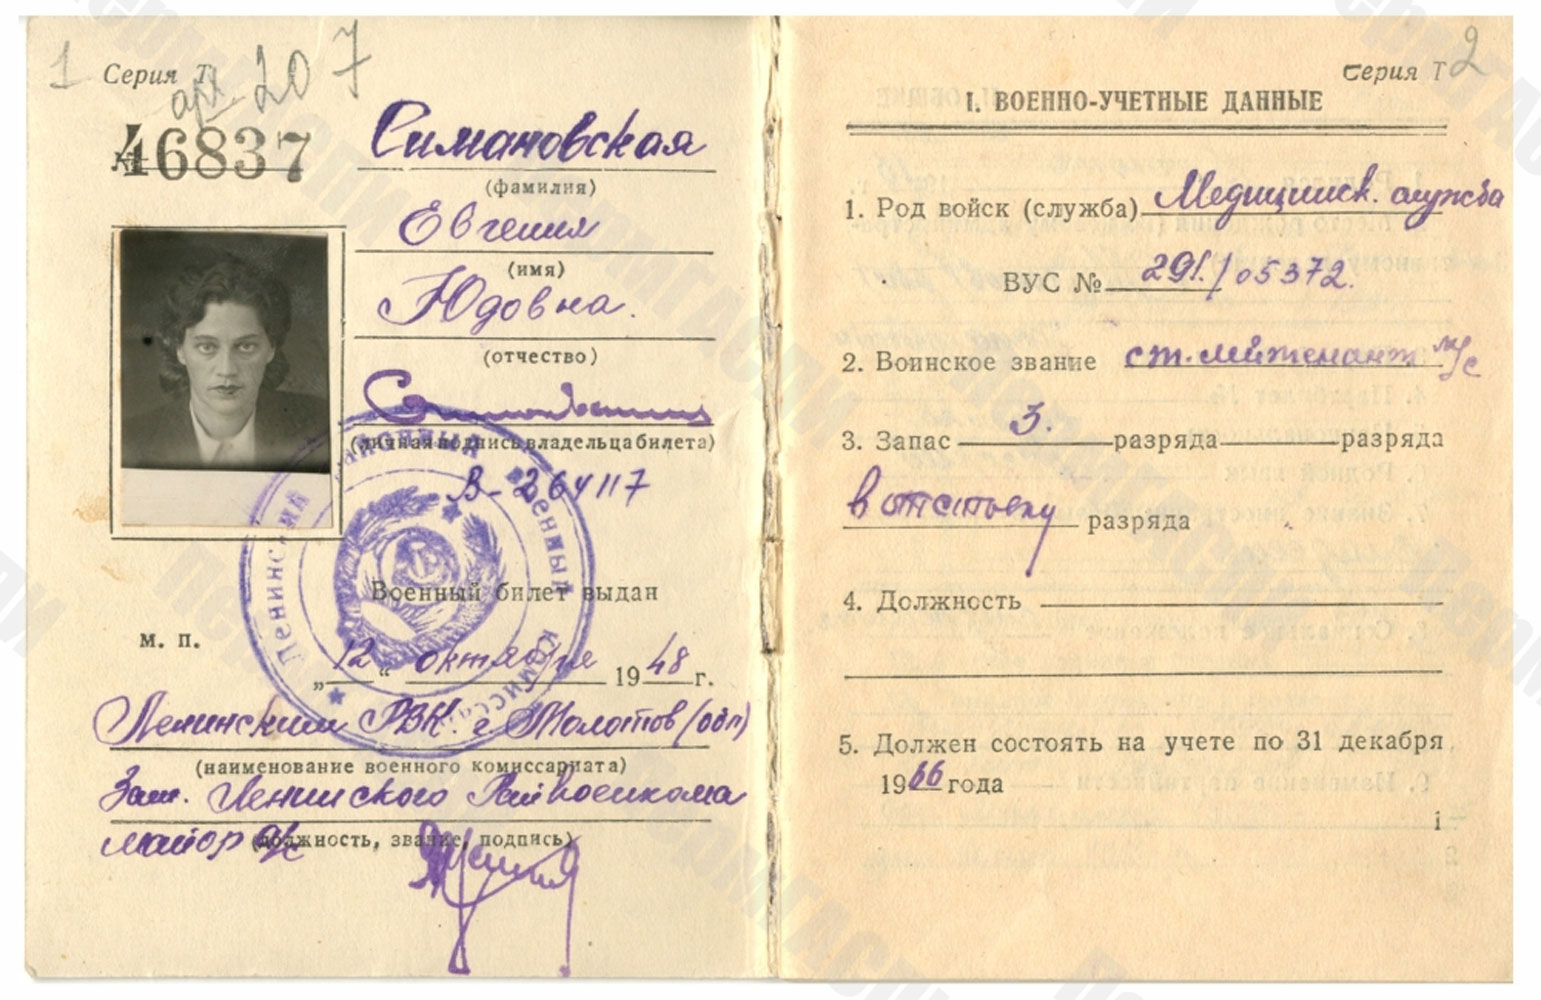 1
Серия Т
арх 207
№ 46837
Симановская
(фамилия)
Евгения
(имя)
Юдовна.
(отчество)
(личная подпись владельца билета)
В-264117
Военный билет выдан
м. п.
„12“ октября 1948 г.
Ленинский РВК. г. Молотов (обл)
(наименование военного комиссариата)
Зам. Ленинского Райвоенкома
(должность, звание, подпись)
майор а/с
Ленинский районный военный комиссариат
2
Серия Т
I. ВОЕННО-УЧЕТНЫЕ ДАННЫЕ
1. Род войск (служба) Медицинск. служба
ВУС № 291./05372.
2. Воинское звание ст. лейтенант м/с
3. Запас 3. разряда разряда
в отставку разряда
4. Должность
5. Должен состоять на учете по 31 декабря
1966 года
1
ПермГАСПИ